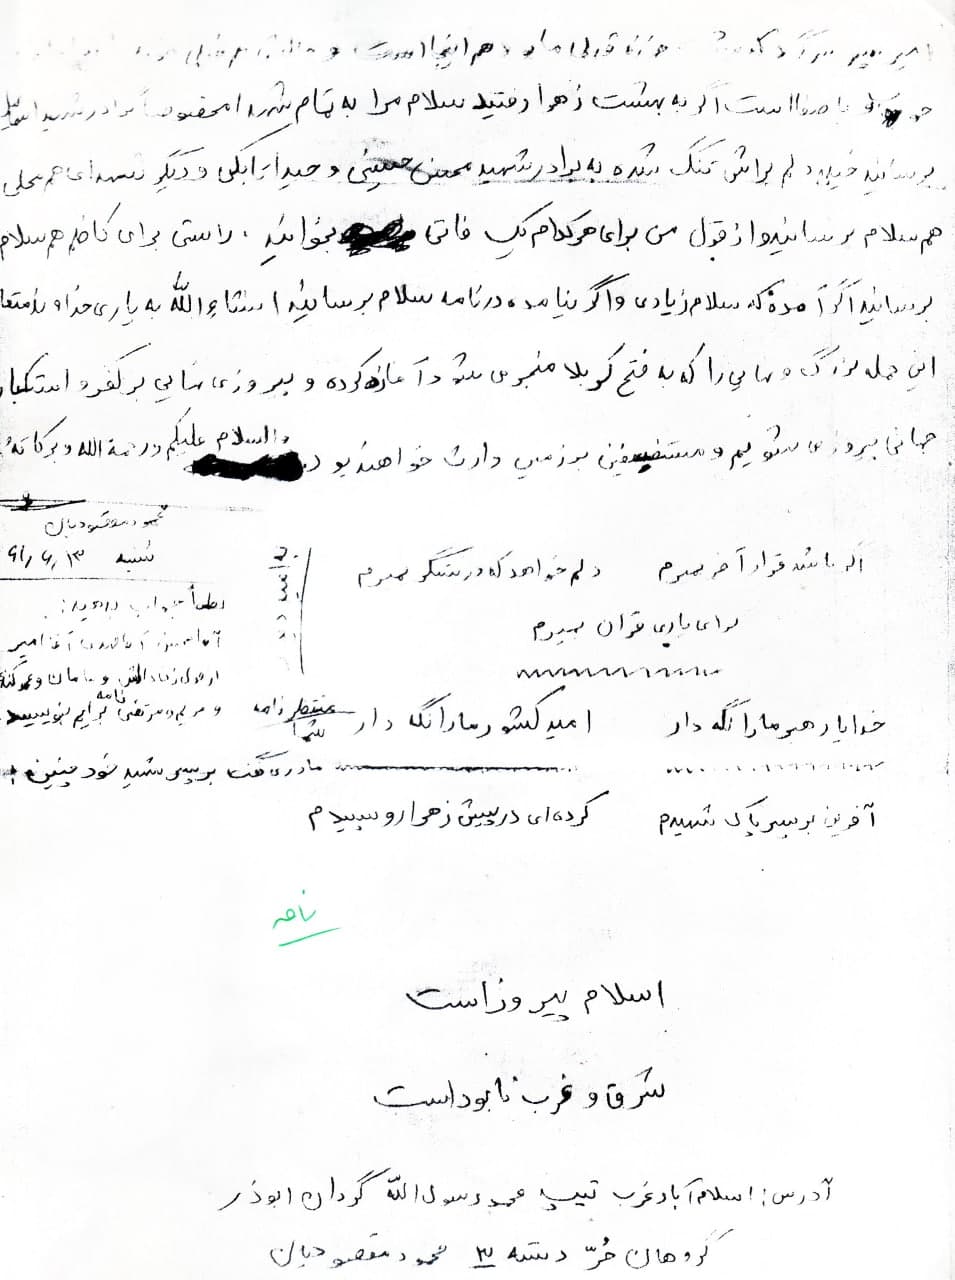 هم اینجا است و
با صفا است اگر به بهشت زهرا رفتید سلام مرا به تمام شهدا مخصوصاً برادر شهید
برسانید خیلی دلم برایش تنگ شده به برادر شهید محسن حسینی و حیدر و دیگر شهدای هم محلی
هم سلام برسانید و از قول من برای هر کدام یک فاتحه بخوانید . راستی برای کاظم هم سلام
برسانید اگر آمده که سلام زیادی و اگر نیامده در نامه سلام برسانید انشاءالله به یاری خداوند متعا
این حمله بزرگ و نهایی را که به فتح کربلا منجر می شود آغاز کرده و پیروزی نهایی بر کفر و استکبار
جهانی پیروز می شویم و مستضعفین بر زمین وارث خواهند بود
والسلام علیکم و رحمة الله و برکاته
محمود مقصودیان
شنبه ۶۱/۶/۱۳
لطفاً جواب بدهید:
و مریم و مرتضی نامه برایم بنویسید
منتظر نامه شما
اگر باشد قرار آخر بمیرم دلم خواهد که در سنگر بمیرم
برای یاری قرآن بمیرم
خدایا رهبر ما را نگه دار امید کشور ما را نگه دار
مادری گفت بر پسر شهید خود چنین:
آفرین بر پسر پاک شهیدم کرده‌ای در پیش زهرا رو سپیدم
نامه
اسلام پیروز است
شرق و غرب نابود است
آدرس: اسلام آباد غرب تیپ محمد رسول الله گردان ابوذر
گروهان حُرّ دسته ۳ محمود مقصودیان